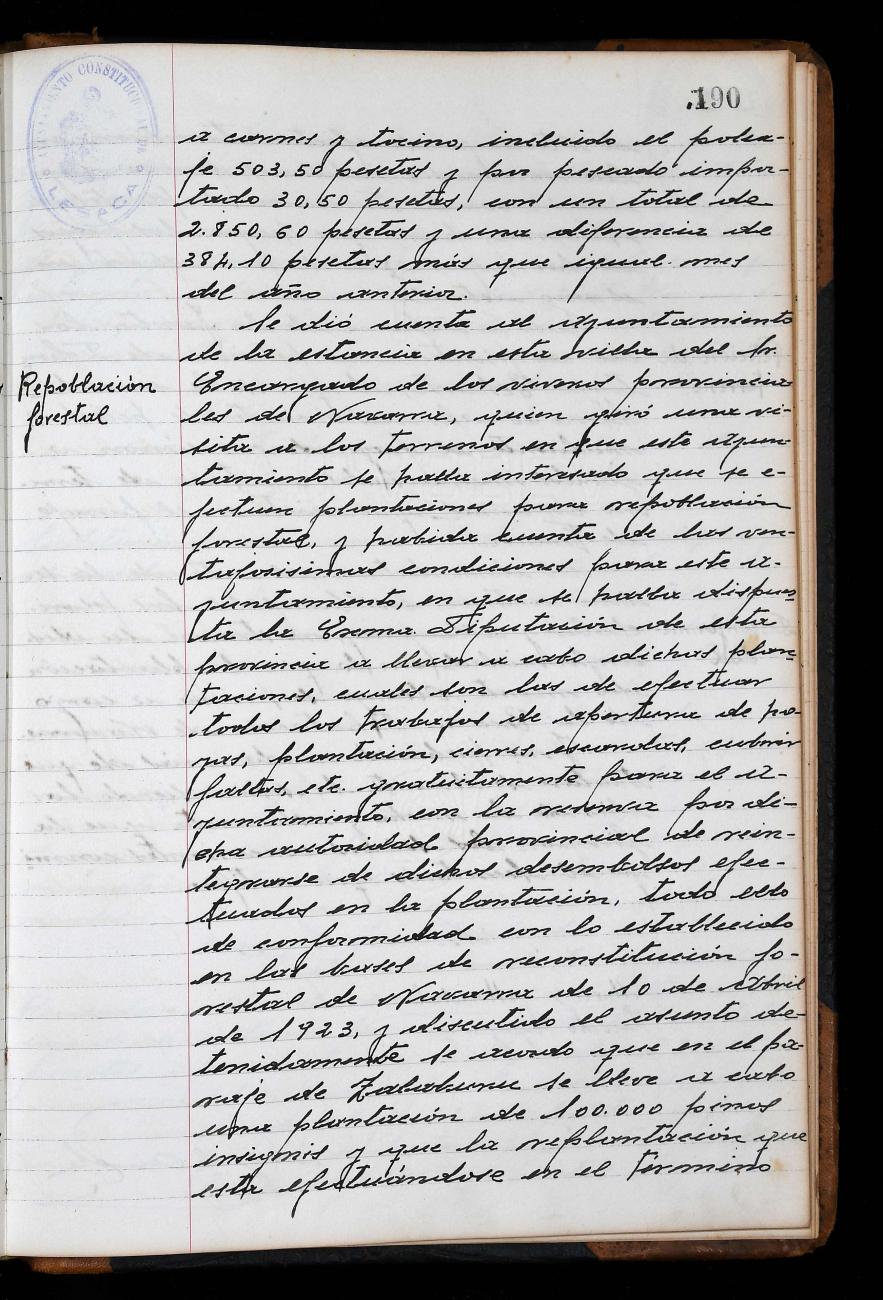 AYUNTAMIENTO CONSTITUCIONAL DE
LESACA
190
a carnes y tocino, incluido el polea-
je 503,50 pesetas y por pescado impor-
tado 30,50 pesetas, con un total de
2.850,60 pesetas y una diferencia de
384,10 pesetas más que igual mes
del año anterior.
Se dió cuenta al ayuntamiento
de la estancia en esta villa del Sr.
Repoblación
forestal
Encargado de los viveros provincia
les de Navarra, quien giró una vi-
sita a los terrenos en que este ayun-
tamiento se halla interesado que se e-
fectuen plantaciones para repoblación
forestal, y habida cuenta de las ven-
tajosisimas condiciones para este a-
yuntamiento, en que se halla dispues
ta la Excma. Diputación de esta
provincia a llevar a cabo dichas plan
taciones, cuales son las de efectuar
todos los trabajos de apertura de ho-
yas, plantación, cierres, escardas, cubrir
faltas, etc. gratuitamente para el a-
yuntamiento, con la reserva por di-
cha autoridad provincial de rein-
tegrarse de dichos desembolsos efec-
tuados en la plantación, todo ello
de conformidad con lo establecido
en las bases de reconstitución fo-
restal de Navarra de 10 de Abril
de 1923, y discutido el asunto de-
tenidamente se acordo que en el pa-
raje de Zalaburu se lleve a cabo
una plantación de 100.000 pinos
insignis y que la replantación que
esta efectuándose en el termino